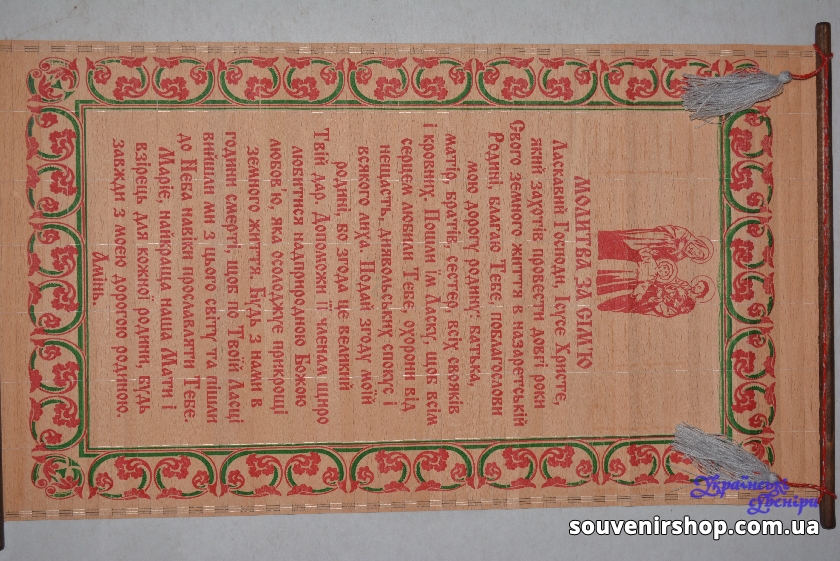 Молитва за сім'ю
Ласкавий Господи, Ісусе Христе,
який захотів провести довгі роки
Свого земного життя в назаретській
Родині, благаю Тебе, поблагослови
мою дорогу родину: батька,
матір, братів, сестер, всіх свояків
і кровних. Пошли їм Ласку, щоб всім
серцем любили Тебе, охорони від
нещасть, диявольських спокус і
всякого лиха. Подай згоду моїй
родині, бо згода це великий
Твій дар. Допоможи її членам щиро
любитися надприродною Божою
любов'ю, яка осолоджує прикрощі
земного життя. Будь з нами в
годині смерті, щоб по Твоїй Ласці
вийшли ми з цього світу та пішли
до Неба навіки прославляти Тебе.
Маріє, найкраща наша Мати і
взірець для кожної родини, будь
завжди з моєю дорогою родиною.
Амінь.
Українські
сувеніри
souvenirshop.com.ua